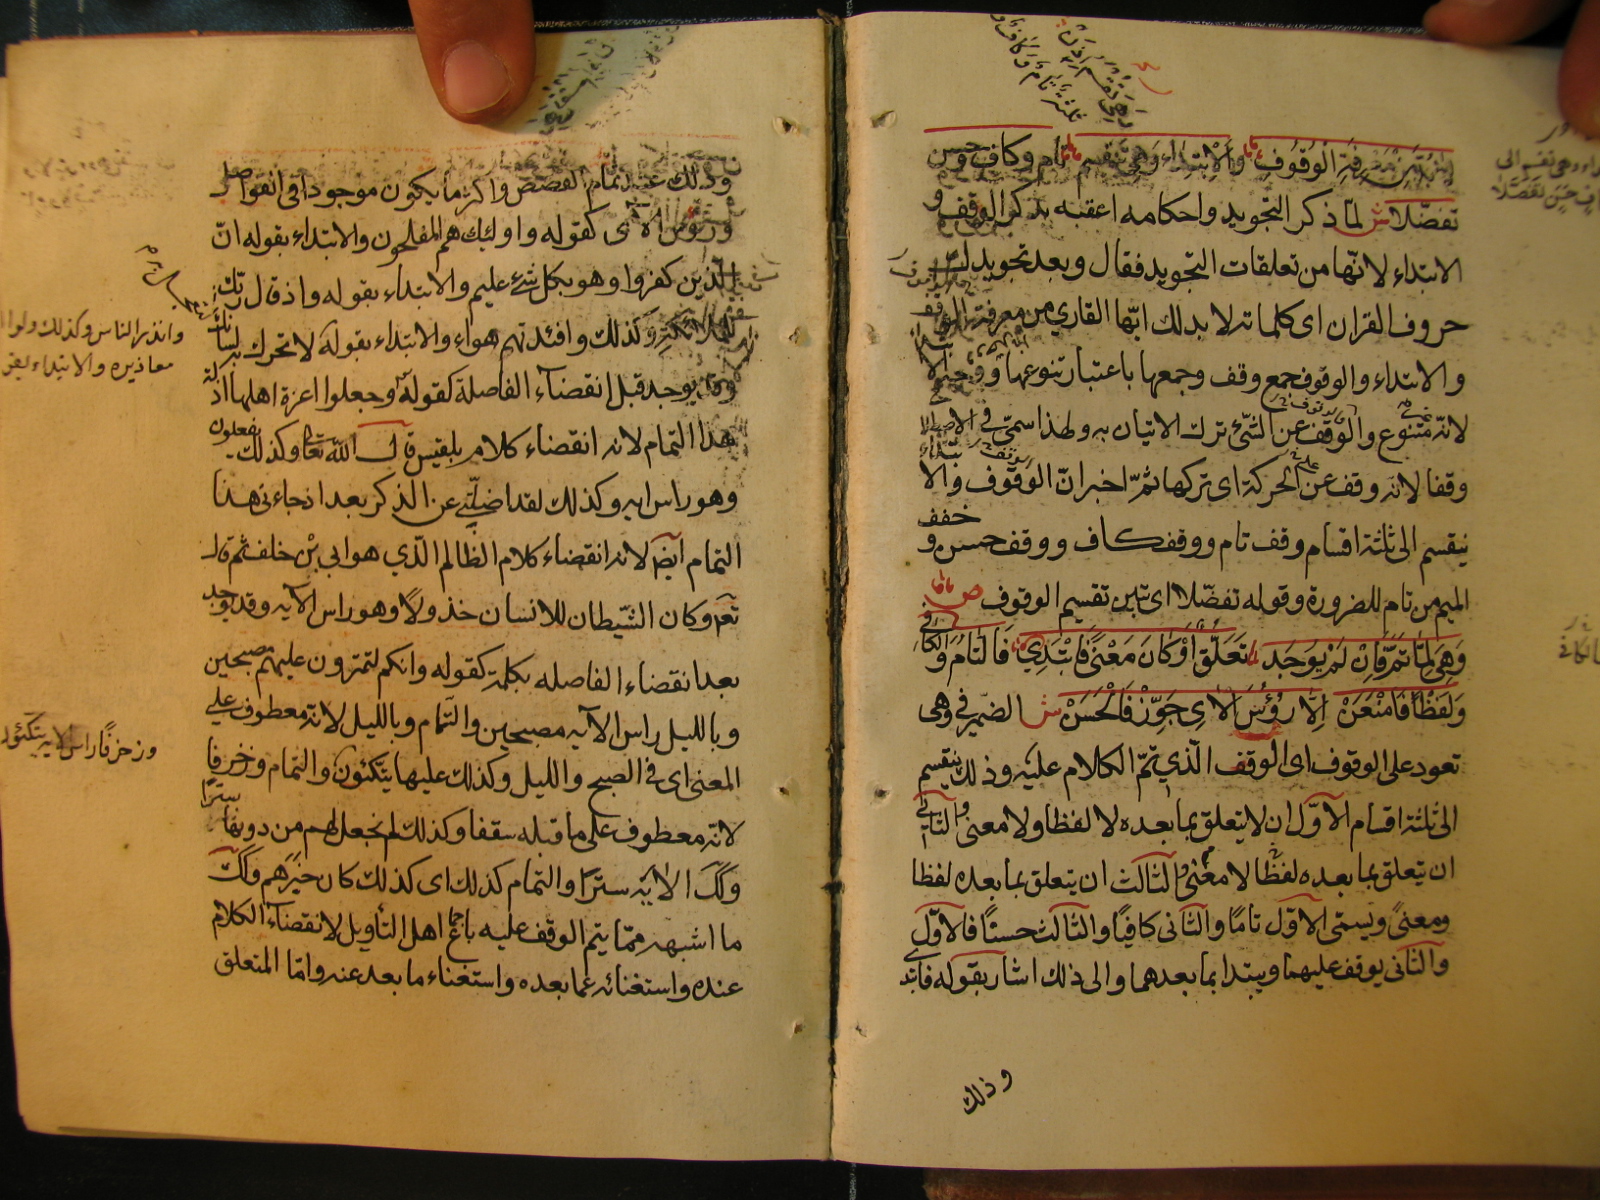 وهي تقسم اذن
ثلثة تام وكاف و
لابد من معرفة الوقوف والابتداء وهي تنقسم تام وكاف وحسن
تفصلا ش لما ذكر التجويد واحكامه اعقبه بذكر الوقف و
الابتداء لانها من تعلقات التجويد فقال وبعد تجويدك
حروف القران اى كلماته لابد لك ايها القاري من معرفة الوقف
والابتداء والوقوف جمع وقف وجمعها باعتبار تنوعها
لانه متنوع والوقف عن الشئ ترك الاتيان به ولهذا سمى في
وقفا لانه وقف عن الحركة اى تركها ثم اخبر ان الوقوف والا
ينقسم الى ثلثة اقسام وقف تام ووقف كاف ووقف حسن و
خفف
الميم من تام للضرورة وقوله تفصلا اى تبين تقسيم الوقوف ص
وهي لما تم فان لم يوجد تعلق او كان معنى فابتدي فالتام والكافي
ولفظا فامنعن الا رؤس الاى جوز فالحسن ش الضمير في وهى
تعود على الوقوف اى الوقف الذي تم الكلام عليه وذلك ينقسم
الى ثلثة اقسام الاول ان لا يتعلق بما بعده لا لفظا ولا معنى والثاني
ان يتعلق بما بعده لفظا لا معنى والثالث ان يتعلق بما بعده لفظا
ومعنى ويسمى الاول تاما والثانى كافيا والثالث حسنا فالاول
والثانى يوقف عليهما ويبتدا بما بعدهما والى ذلك اشار بقوله فابتد
وذلك
وذلك عند تمام القصص واكثر ما يكون موجودا في الفواصل
ورؤس الاى كقوله واولئك هم المفلحون والابتداء بقوله ان
الذين كفروا وهو بكل شئ عليم والابتداء بقوله واذ قال ربك
للملائكة وكذلك وافئدتهم هواء والابتداء بقوله لا تحرك به لسانك
وانذر الناس وكذلك ولو القى
معاذيره والابتداء بقو
وقد يوجد قبل انقضاء الفاصلة كقوله وجعلوا اعزة اهلها اذلة
هذا التمام لانه انقضاء كلام بلقيس قال الله تعا وكذلك يفعلون
وهو راس ايه وكذلك لقد اضلني عن الذكر بعد اذ جاءنى هذا
التمام ايضا لانه انقضاء كلام الظالم الذي هو ابي بن خلف ثم قال
تع وكان الشيطان للانسان خذولا وهو راس الآيه وقد يوجد
بعد انقضاء الفاصله بكلمة كقوله وانكم لتمرون عليهم مصبحين
وبالليل راس الآيه مصبحين والتمام وبالليل لانه معطوف على
المعنى اى في الصبح والليل وكذلك عليها يتكئون والتمام وزخرفا
وزخرفا راس الايه يتكئون
لانه معطوف على ما قبله سقفا وكذلك لم نجعل لهم من دونها سترا
الايه سترا والتمام كذلك اى كذلك كان خبرهم
ما اشبهه مما يتم الوقف عليه باجماع اهل التأويل لانقضاء الكلام
عنده واستغنائه عما بعده واستغناء ما بعد عنه واما المتعلق